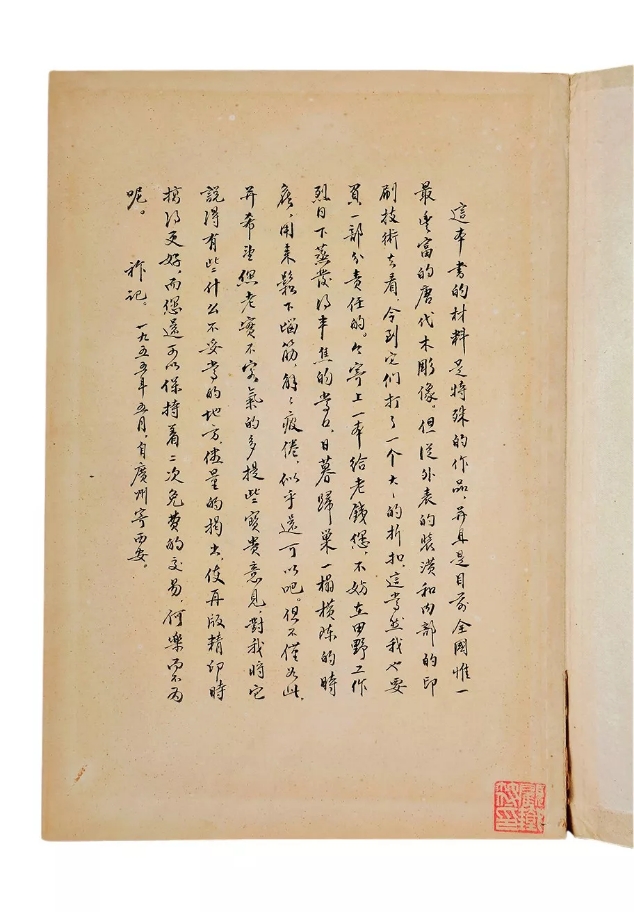 這本书的材料是特殊的作品，并且是目前全國惟一
最丰富的唐代木雕像。但従外表的裝潢和内部的印
刷技術去看，令到它们打了一个大大的折扣，這当然我也要
負一部分責任的。今寄上一本給老錢您，不妨在田野工作
烈日下蒸發得半焦的当口，日暮歸巢一榻橫陈的時
候，用来鬆下惱筋，解解疲倦，似乎還可以吧。但不僅如此，
并希望您老實不客氣的多提些寶贵意見，對我將它
說得有些什么不妥当的地方，儘量的揭出，使再版精印時
搞得更好，而您還可以保持着二次免費的交易，何樂而不为
呢。　祚記。一九五五年五月，自廣州寄西安。